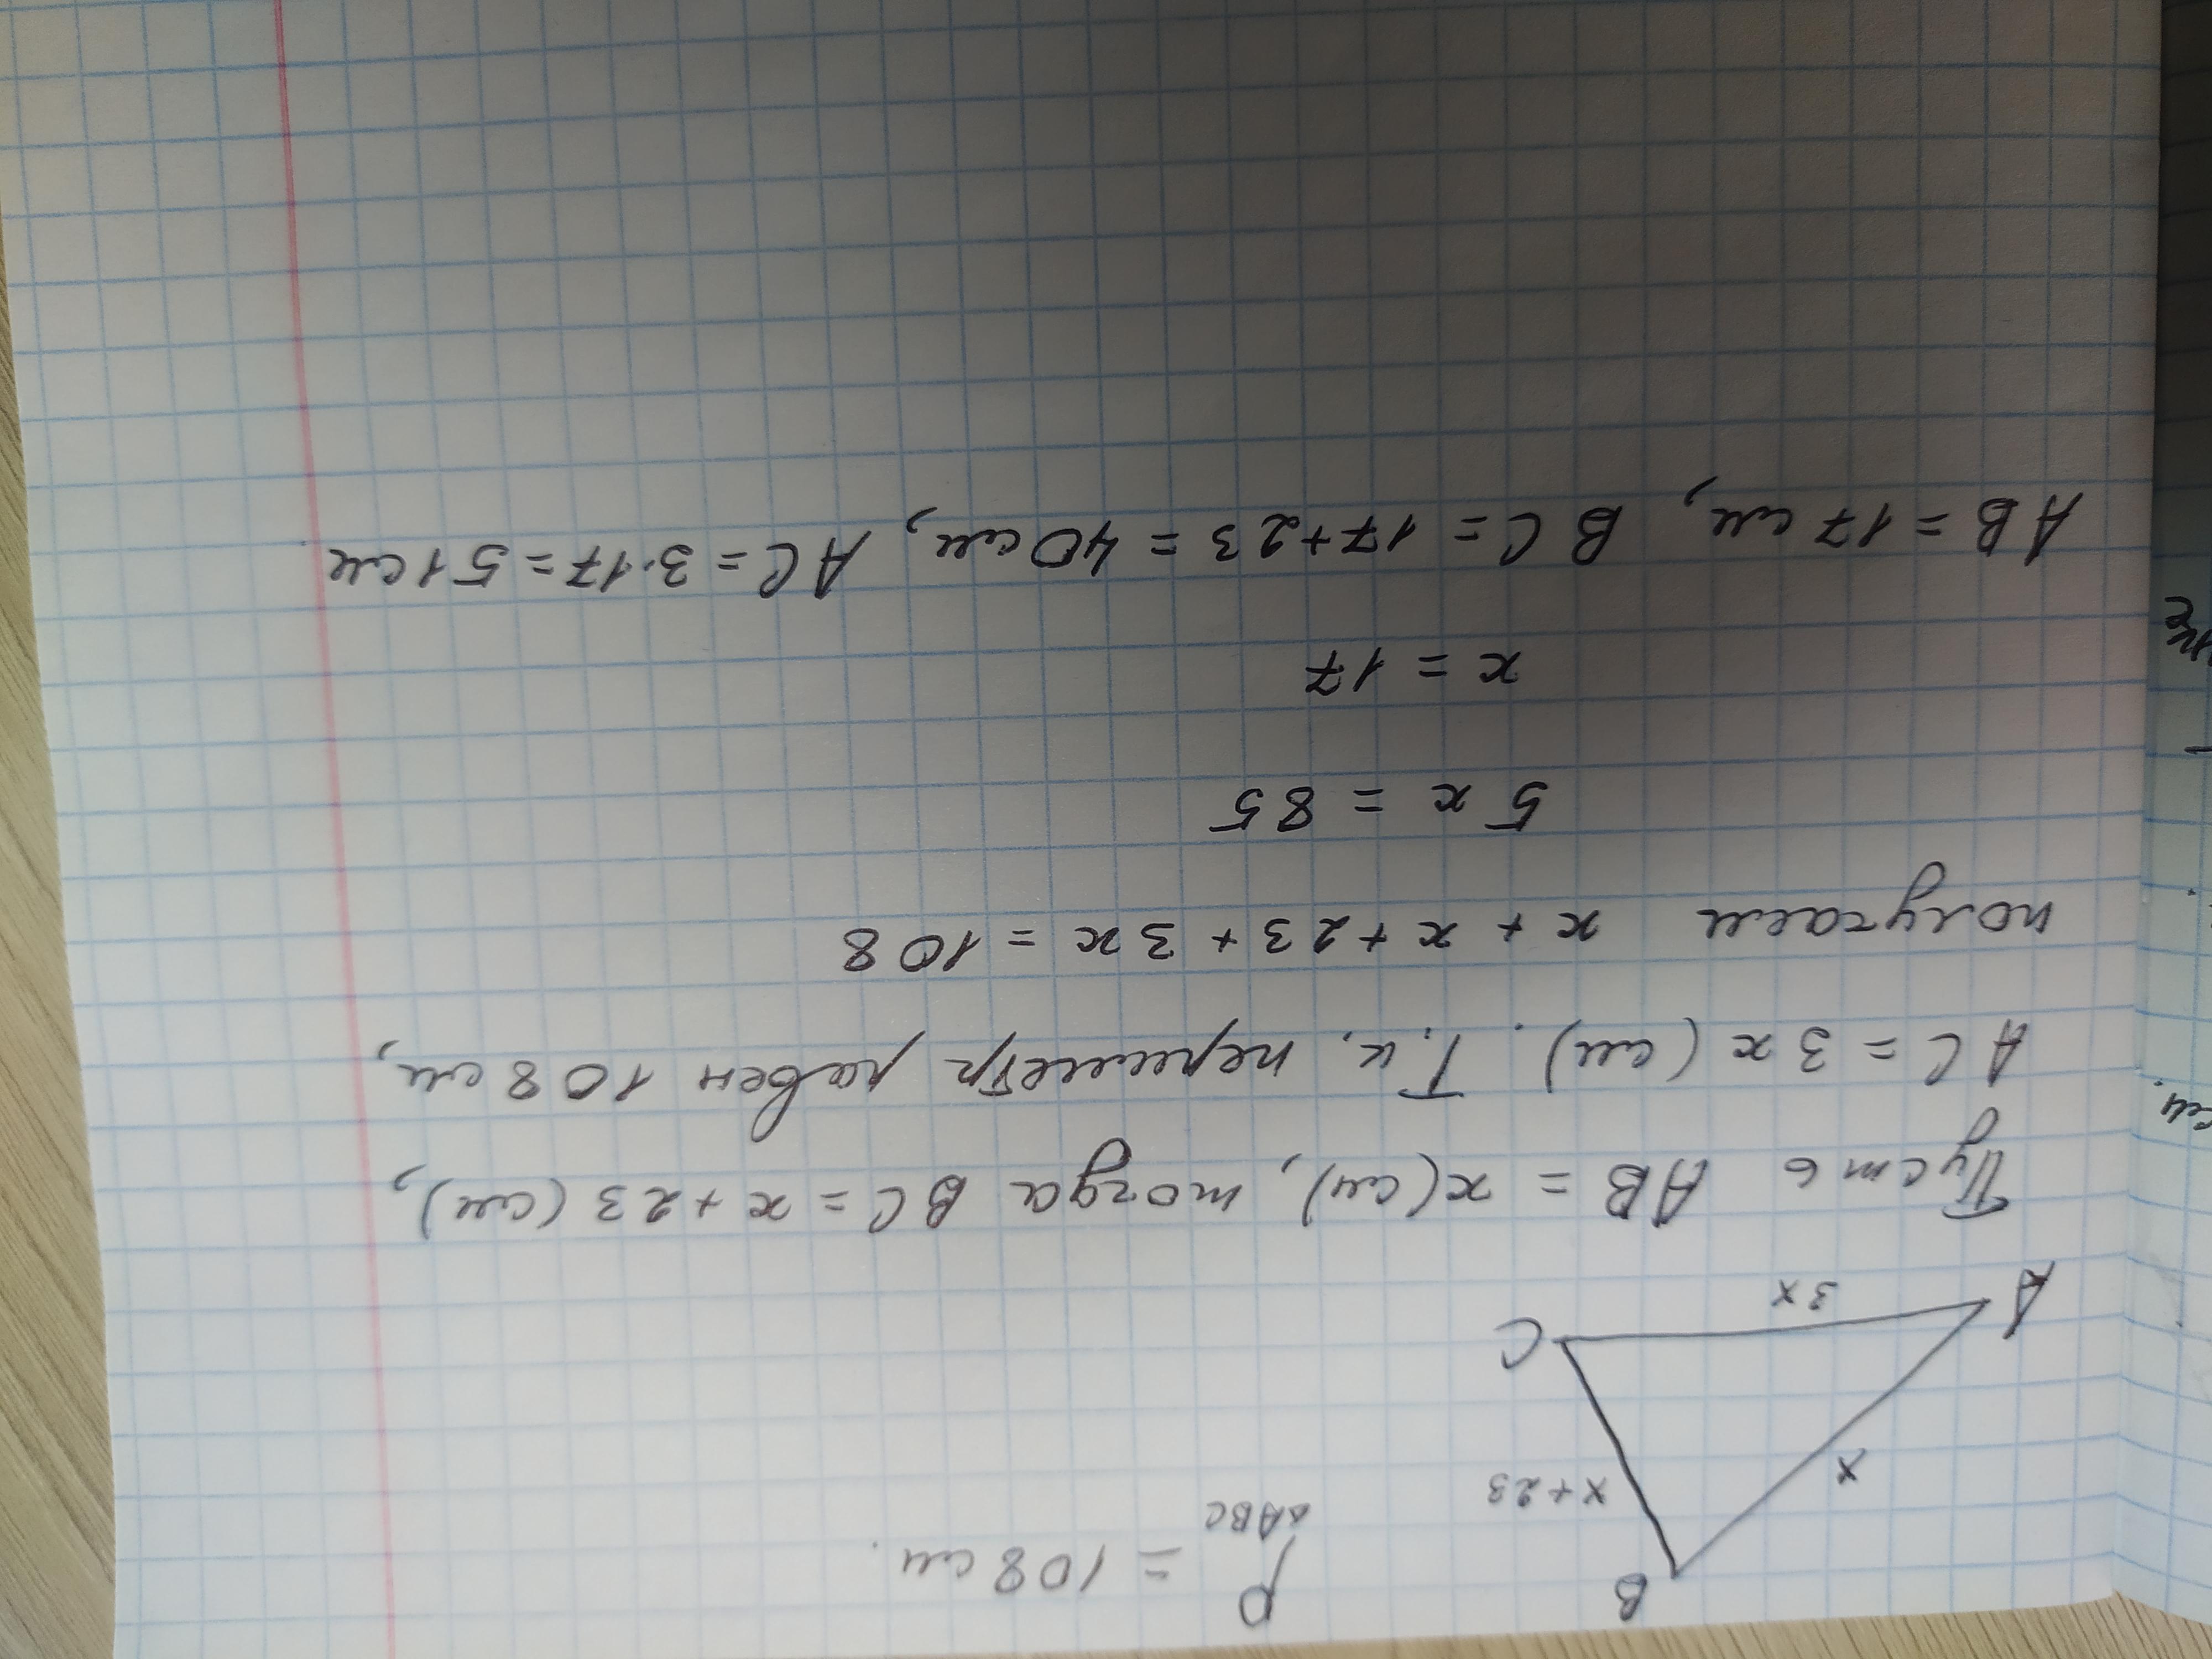 B
P△ABC = 108 см.
x
x+23
A
C
3x
Пусть AB = x(см), тогда BC = x + 23 (см),
AC = 3x (см). Т.к. периметр равен 108 см,
получаем x + x + 23 + 3x = 108
5x = 85
x = 17
AB = 17 см, BC = 17+23 = 40 см, AC = 3·17 = 51 см.